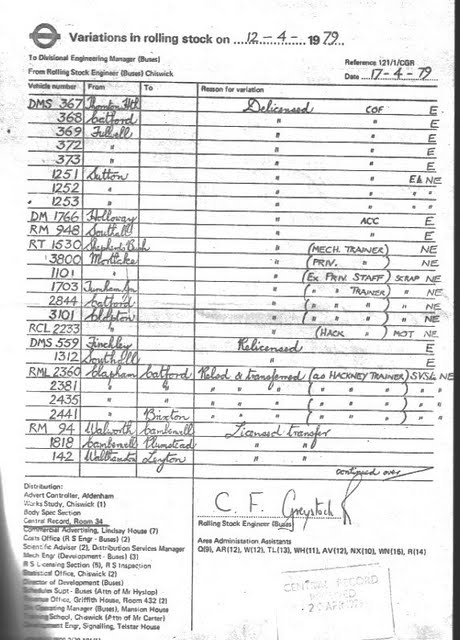 Variations in rolling stock on 12-4-1979
To Divisional Engineering Manager (Buses)
From Rolling Stock Engineer (Buses) Chiswick
Reference 121/1/CGR
Date 17-4-79
Vehicle number From To Reason for variation
DMS 367 Thornton Hth Delicensed COF E
368 Catford " " E
369 Fulwell " " E
372 " " " E
373 " " " E
1251 Sutton " " E& NE
1252 " " " " "
1253 " " " " "
DM 1766 Holloway " ACC E
RM 948 Southall " " E
RT 1530 Shepherds Bush " (MECH. TRAINER) NE
3800 Mortlake " (PRIV. " ) NE
1101 " " (EX PRIV STAFF) SCRAP NE
1703 Turnham Gn " ( " " TRAINER) " NE
2844 Catford " ( " " " ) " NE
3101 Clapton " ( " " " ) " NE
RCL 2233 " " (HACK " ) MOT NE
DMS 559 Finchley Relicensed E
1312 Southall " E
RML 2360 Clapham Catford Relsd & transferred (as HACKNEY TRAINER) NE
2381 " " " " " ( " " " ) " "
2435 " " " " " ( " " " ) " "
2441 " Brixton " " " ( " " " ) " "
RM 94 Walworth Camberwell Licensed transfer
1818 Camberwell Plumstead " "
142 Walthamstow Leyton " "
continued over
Distribution:
Advert Controller, Aldenham
Works Study, Chiswick (1)
Body Spec Section
Central Record, Room 34
Commercial Advertising, Lindsay House (7)
Costs Office (R S Engr - Buses) (2)
Scientific Adviser (2), Distribution Services Manager
Mech Engr (Development - Buses) (3)
R S Licensing Section (5), R S Inspection
Statistical Office, Chiswick (2)
Director of Development (Buses)
Schedules Supt - Buses (Attn of Mr Hyslop)
Office, Griffith House, Room 432 (2)
Operating Manager (Buses), Mansion House
Training School, Chiswick (Attn of Mr Carter)
Development Engr, Signalling, Telstar House
C. F. Greystock
Rolling Stock Engineer (Buses)
Area Administration Assistants
Q(9), AR(12), W(12), TL(13), WH(11), AV(12), NX(10), WN(15), R(14)
CENTRAL RECORD
RECEIVED
20 APR